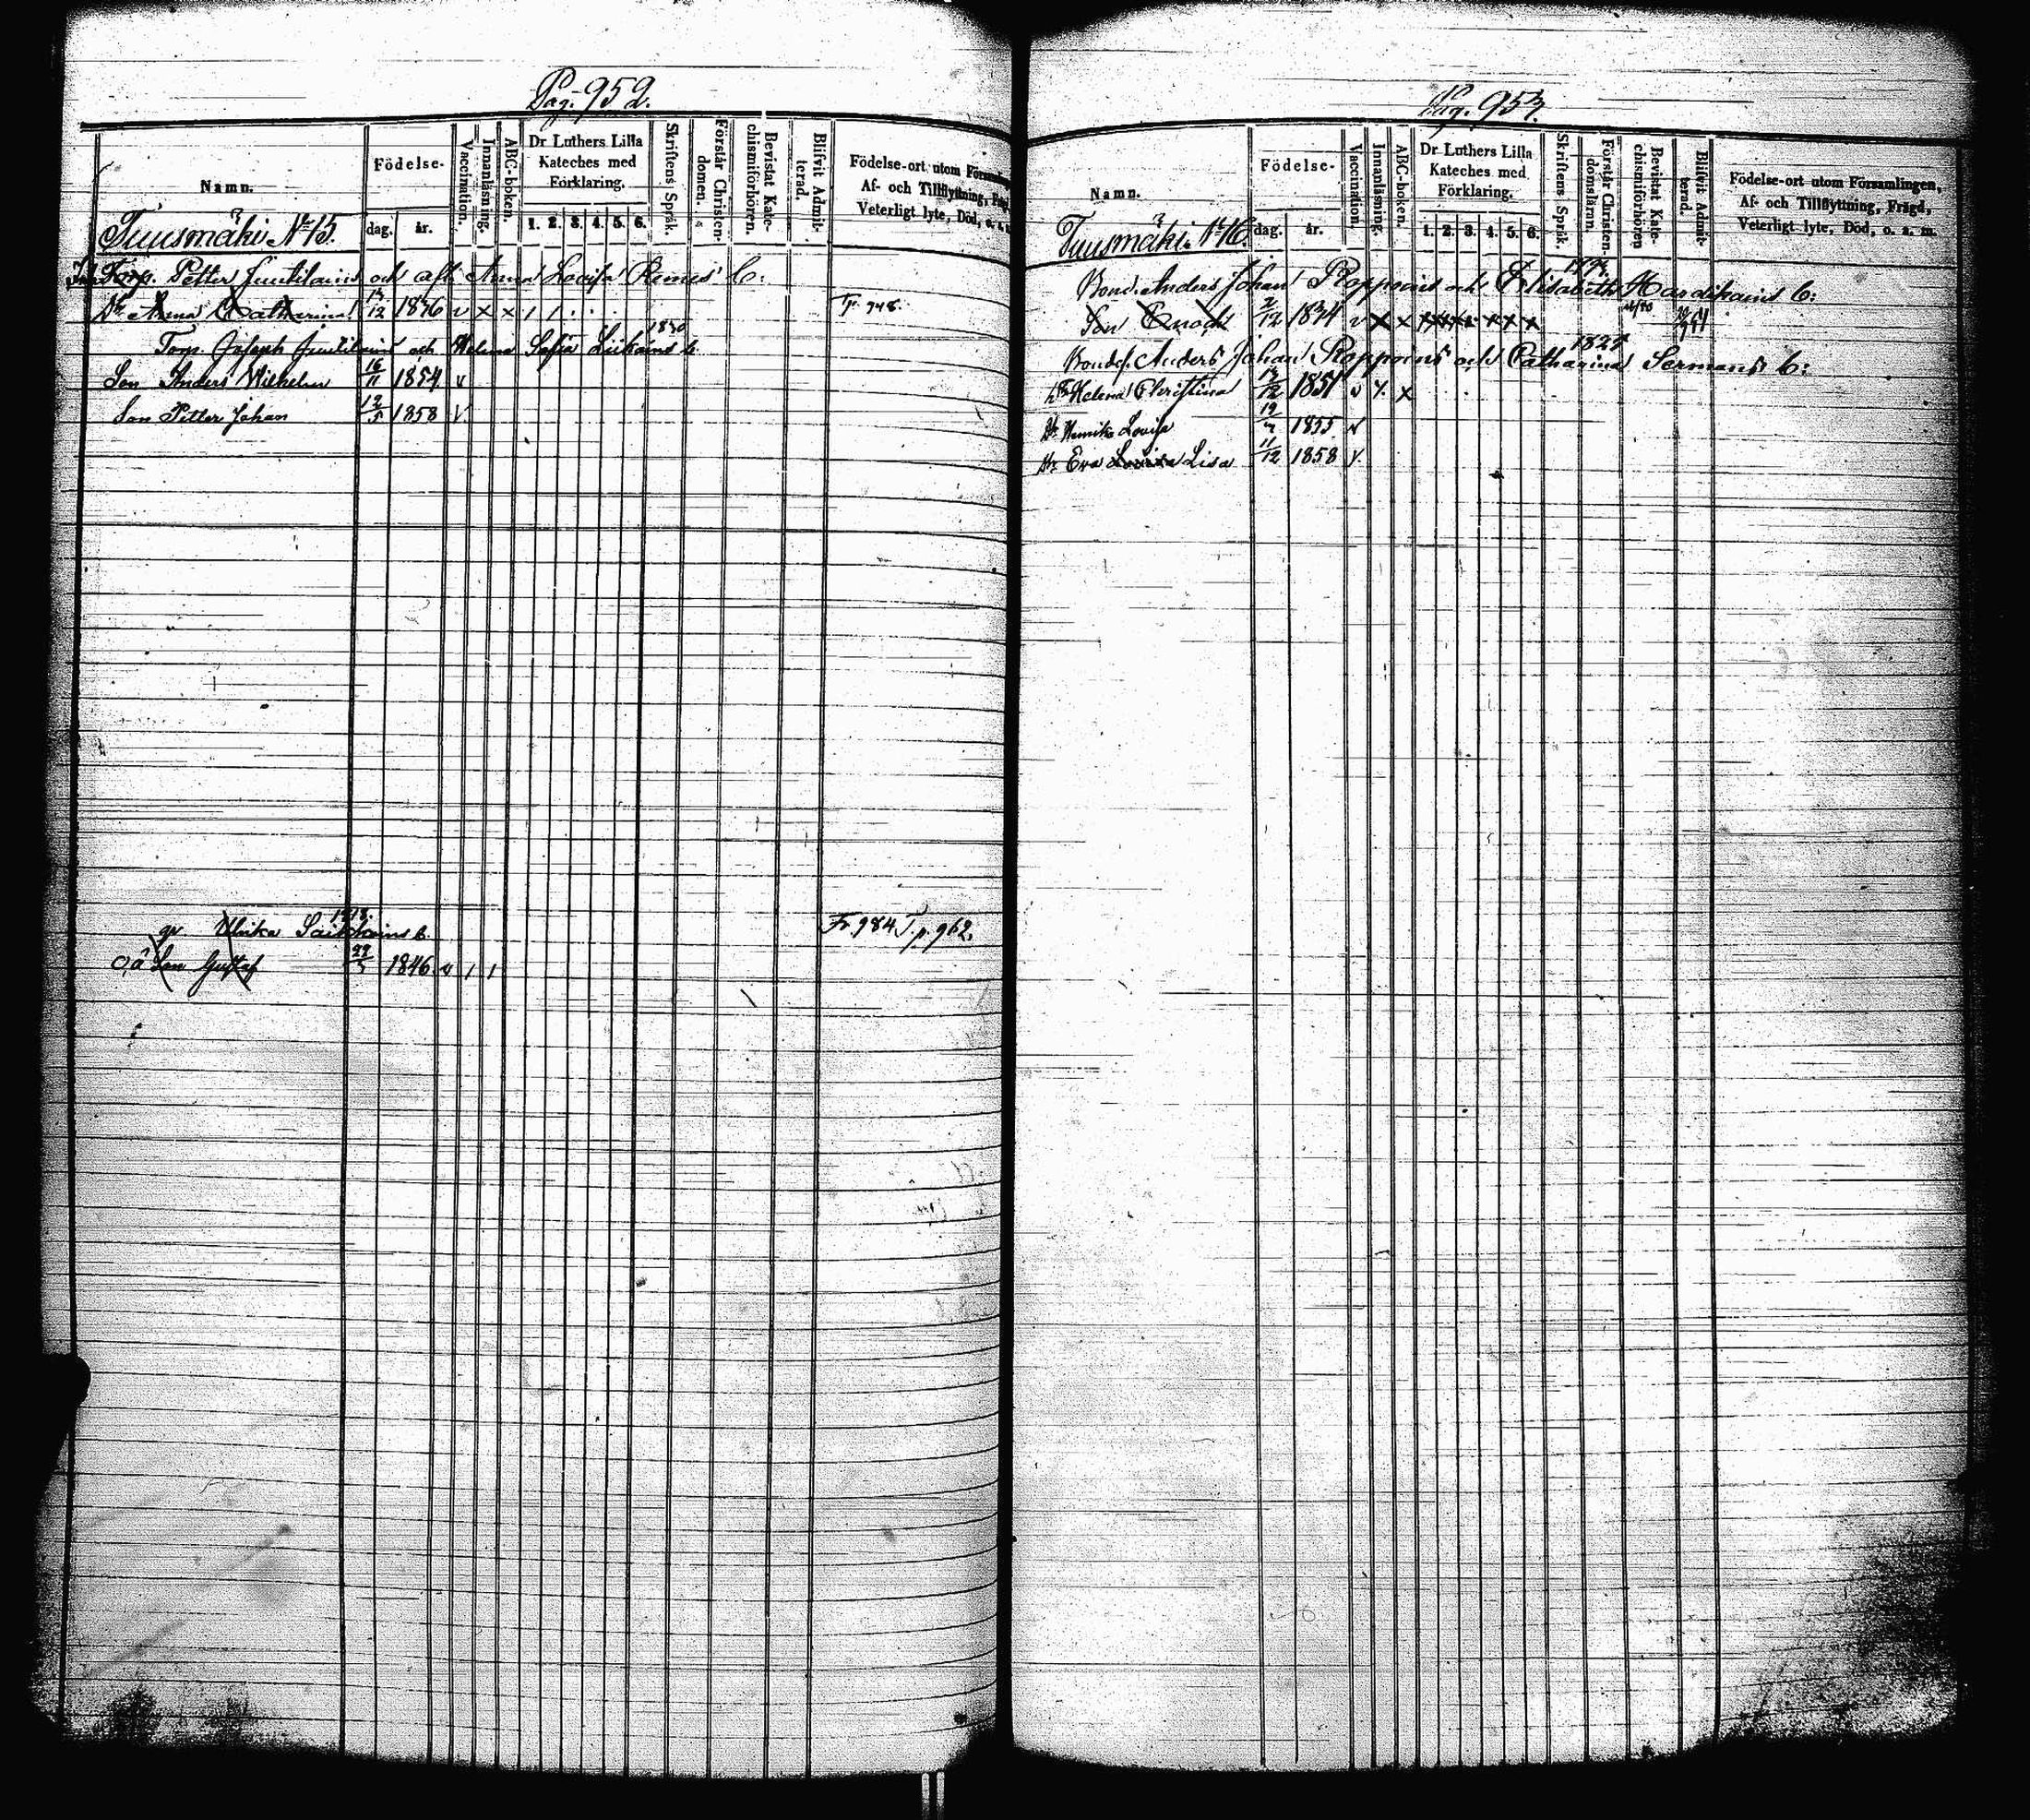 Pag. 952.
Namn.
Födelse-
dag.
år.
Vaccination.
Innanläsning.
ABC-boken.
Dr Luthers Lilla
Kateches med
Förklaring.
1. 2. 3. 4. 5. 6.
Skriftens Språk.
Förstår Christen-
domen.
Bevistat Kate-
chismiförhören.
Blifvit Admit-
terad.
Födelse-ort utom Försam
Af- och Tillflyttning,
Veterligt lyte, Död, o. s.
Tuusmäki № 15.
Torp. Petter Juntilains och afl. Anna Lovisa Remes b:
Dr Anna Catharina 12 1846 v x x 1 1 Tp. 948.
1830
Torp. Joseph Juntilains och Helena Sofia Liikains b.
Son Anders Wilhelm 16/11 1854 v
Son Petter Johan 12/5 1858 v.
1818.
Ulrika Saikkoins b. Fr. 984 T. p. 962.
O,ä Son Gustaf 1846 v 1 1
Pag. 953.
Namn.
Födelse-
dag.
år.
Vaccination.
Innanläsning.
ABC-boken.
Dr Luthers Lilla
Kateches med
Förklaring.
1. 2. 3. 4. 5. 6.
Skriftens Språk.
Förstår Christen-
domslärnn.
Bevistat Kate-
chismiförhören
Blifvit Admit-
terad.
Födelse-ort utom Församlingen,
Af- och Tillflyttning, Frägd,
Veterligt lyte, Död, o. s. m.
Tuusmäki № 16.
Bond. Anders Johan Roppoins och Elisabeth Hardikains b:
Son Enoch 2/12 1834 v x x x x x x x x
Bondes. Anders Johan Roppoins och Catharina Sermans b:
Helena Christina 1851 v x
Dr Henrika Lovisa 1855 v
Dr Eva Lovisa Lisa 11/12 1858 v.